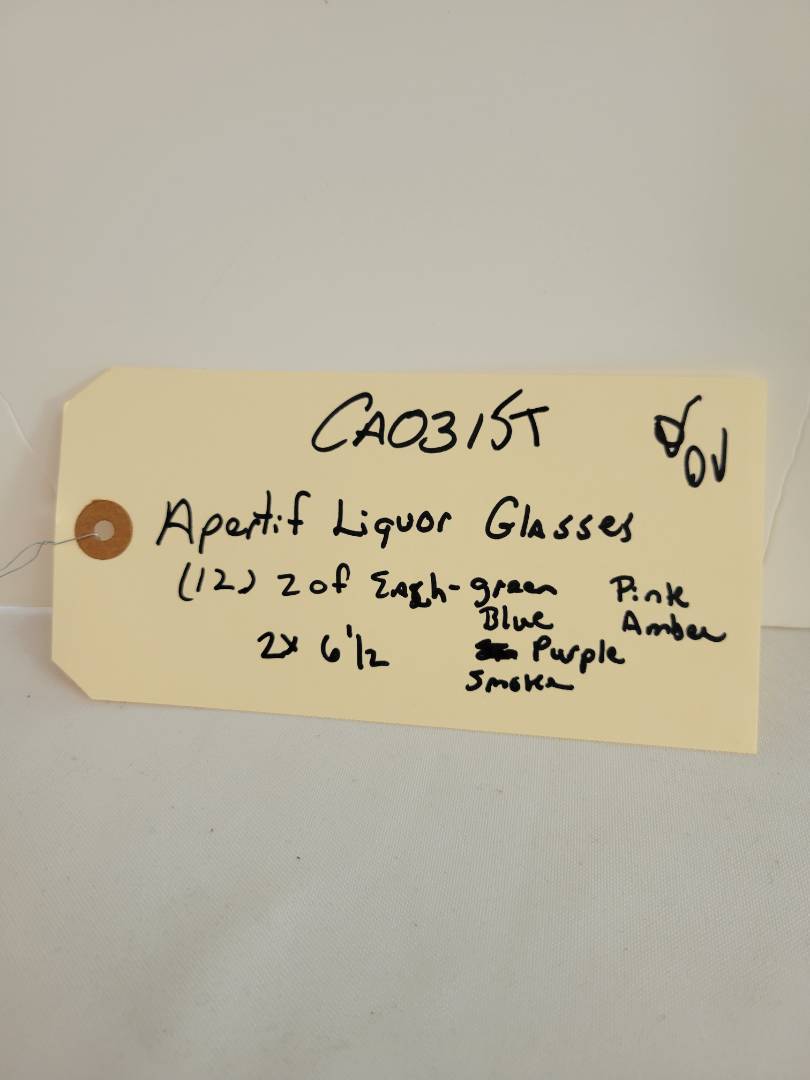 CA0315T
Apertif Liquor Glasses
(12) 2 of Each - green Pink
Blue Amber
2x 6 1/2 Purple
Smoke